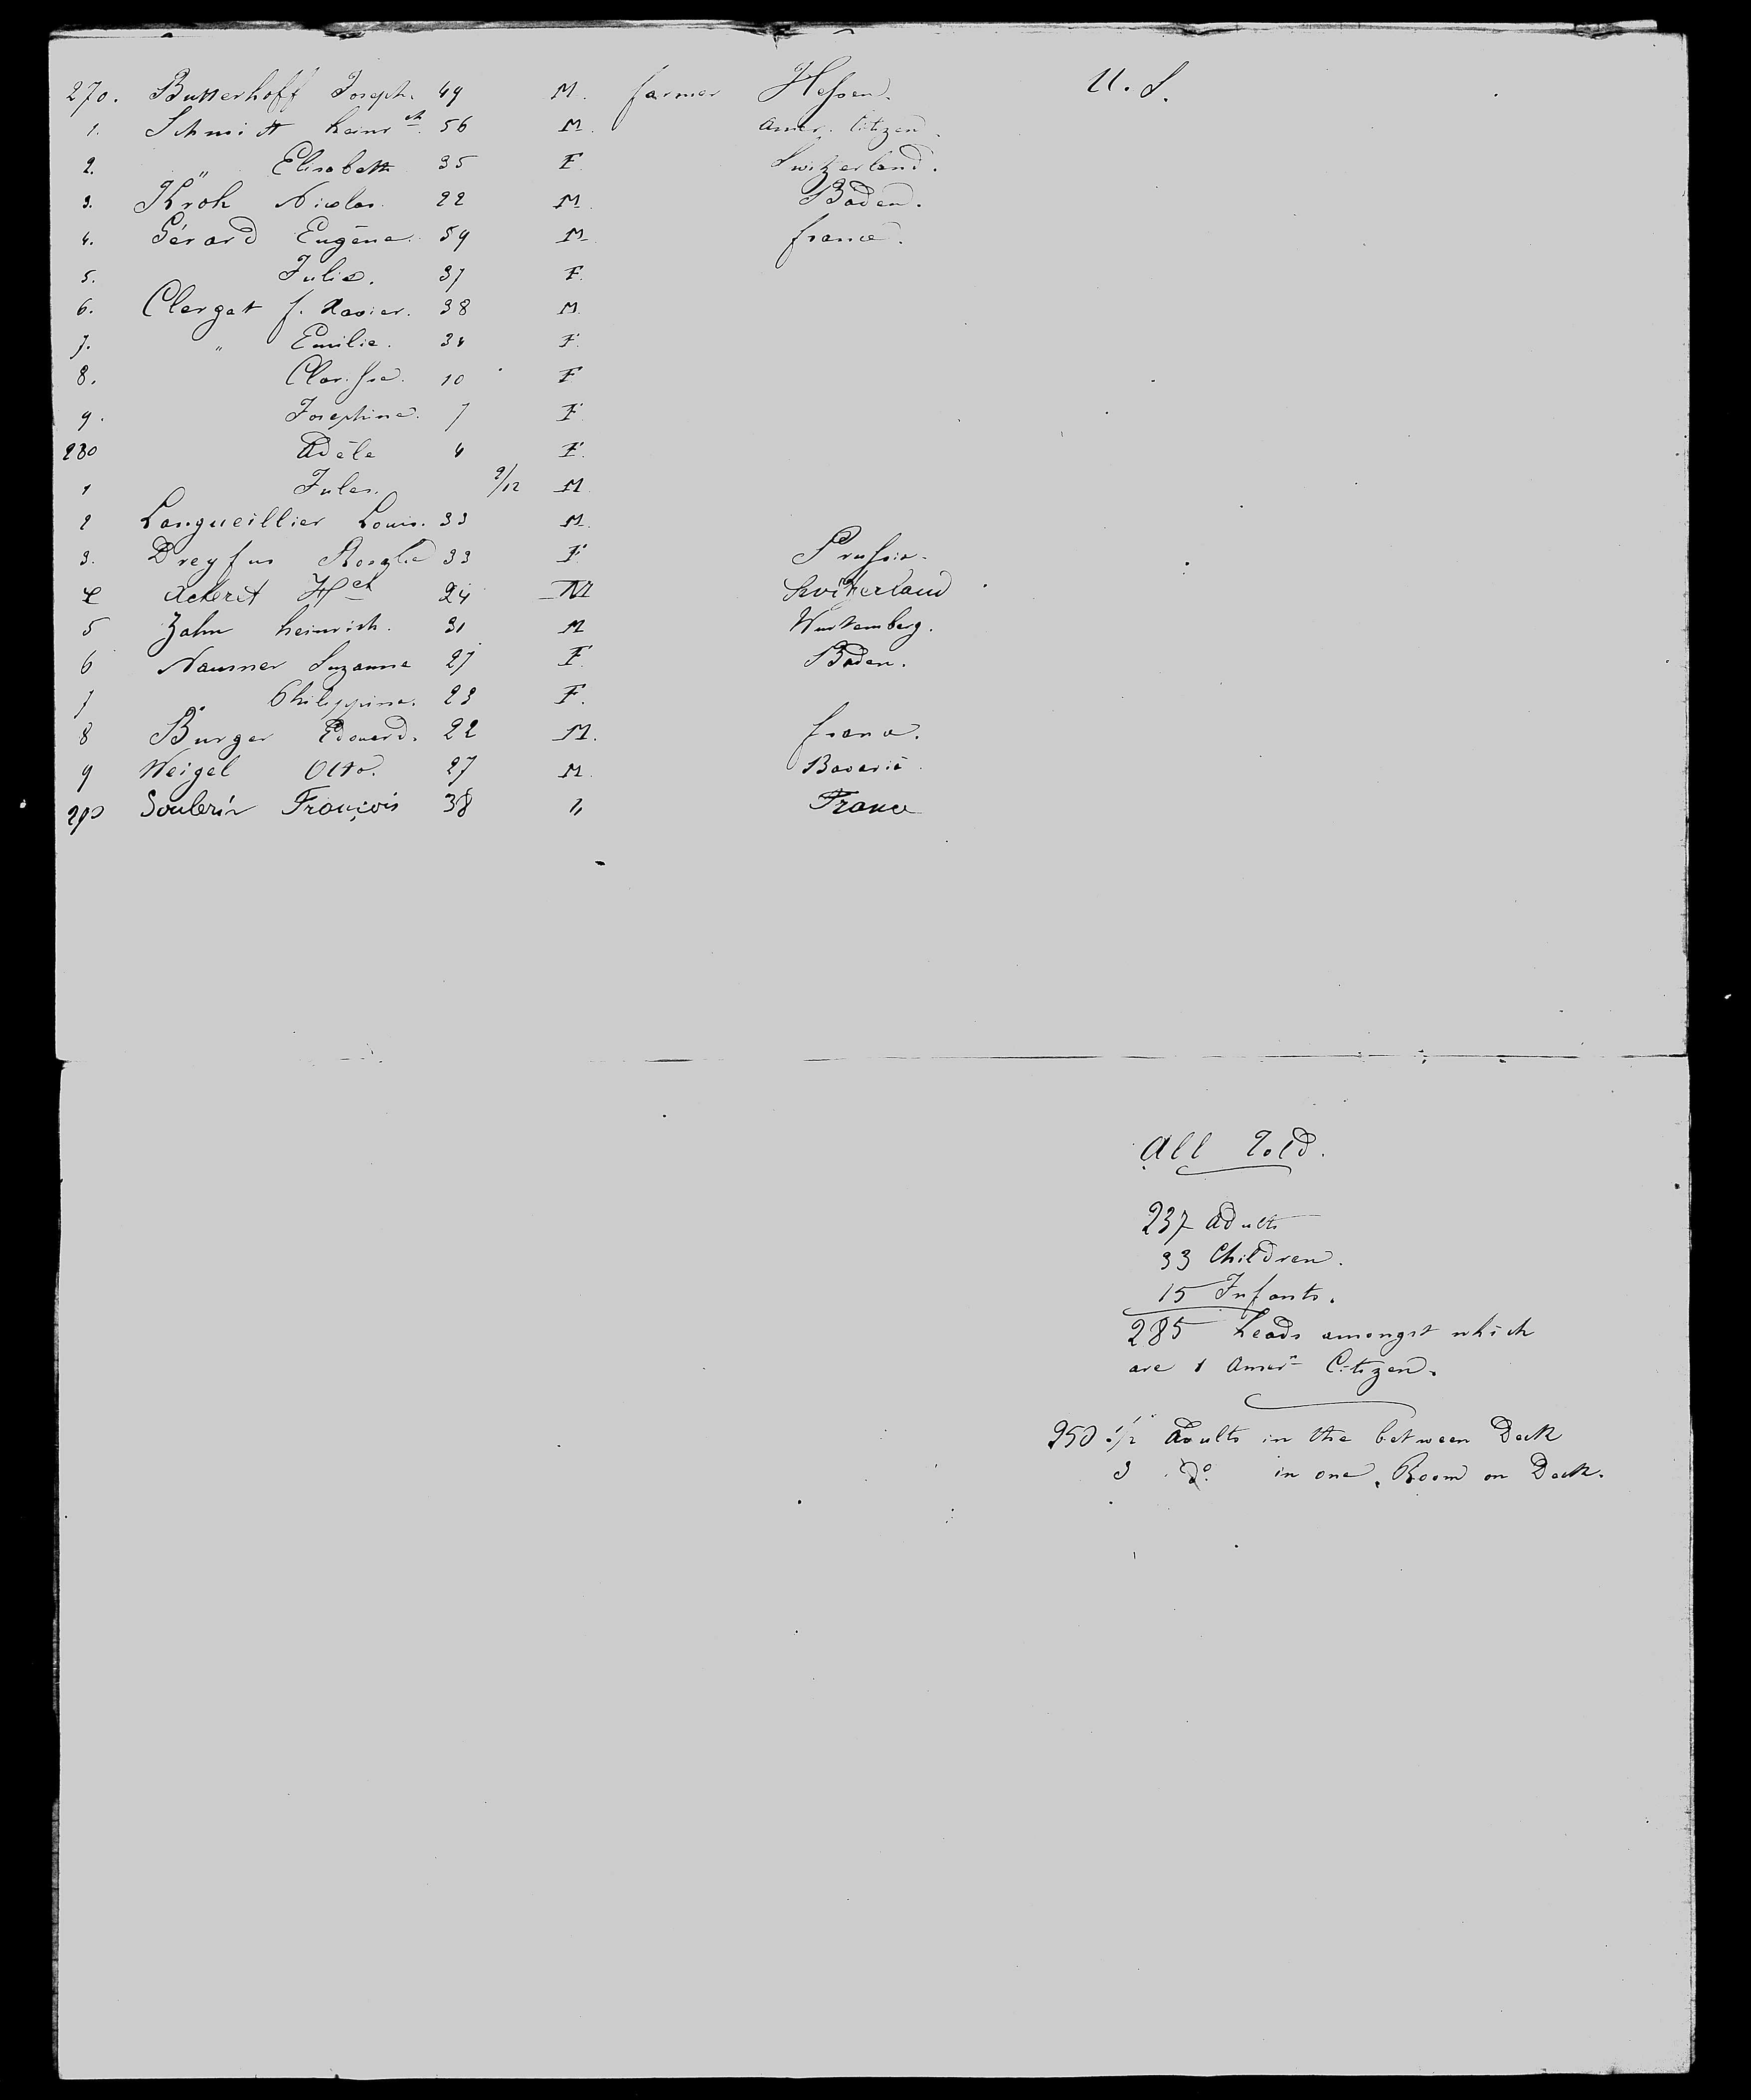 270. Butterhoff Joseph. 49 M. farmer Hessen. U.S.
1. Schmitt heinr ch. 56 M. Amer. Citizen.
2. " Elisabeth 35 F Switzerland.
3. Kroh Nicolas. 22 M. Baden.
4. Gérard Eugène. 59 M. france.
5. Julie. 37 F.
6. Clerget f. Xavier. 38 M.
7. " Emilie. 34 F.
8. Clarisse. 10 F
9. Josephine. 7 F.
280 Adèle 4 F.
1 Jules. 9/12 M.
2 Langueillier Louis. 33 M.
3. Dreyfus Rosalie 33 F. Prussia.
4 Ackeret Hch 24 M Switzerland
5 Zahn heinrich. 31 M Wurtemberg.
6 Naumer Suzanne 27 F. Baden.
7 " Philippine. 23 F.
8 Burger Edouard. 22 M. france.
9 Weigel Otto. 27 M. Bavaria.
290 Soulerin François 38 " France
All Told.
237 Adults
33 Children.
15 Infants.
285 heads amongst which
are 1 Amern Citizen.
250 1/2 Adults in the between Deck
3 do. in one Room on Deck.